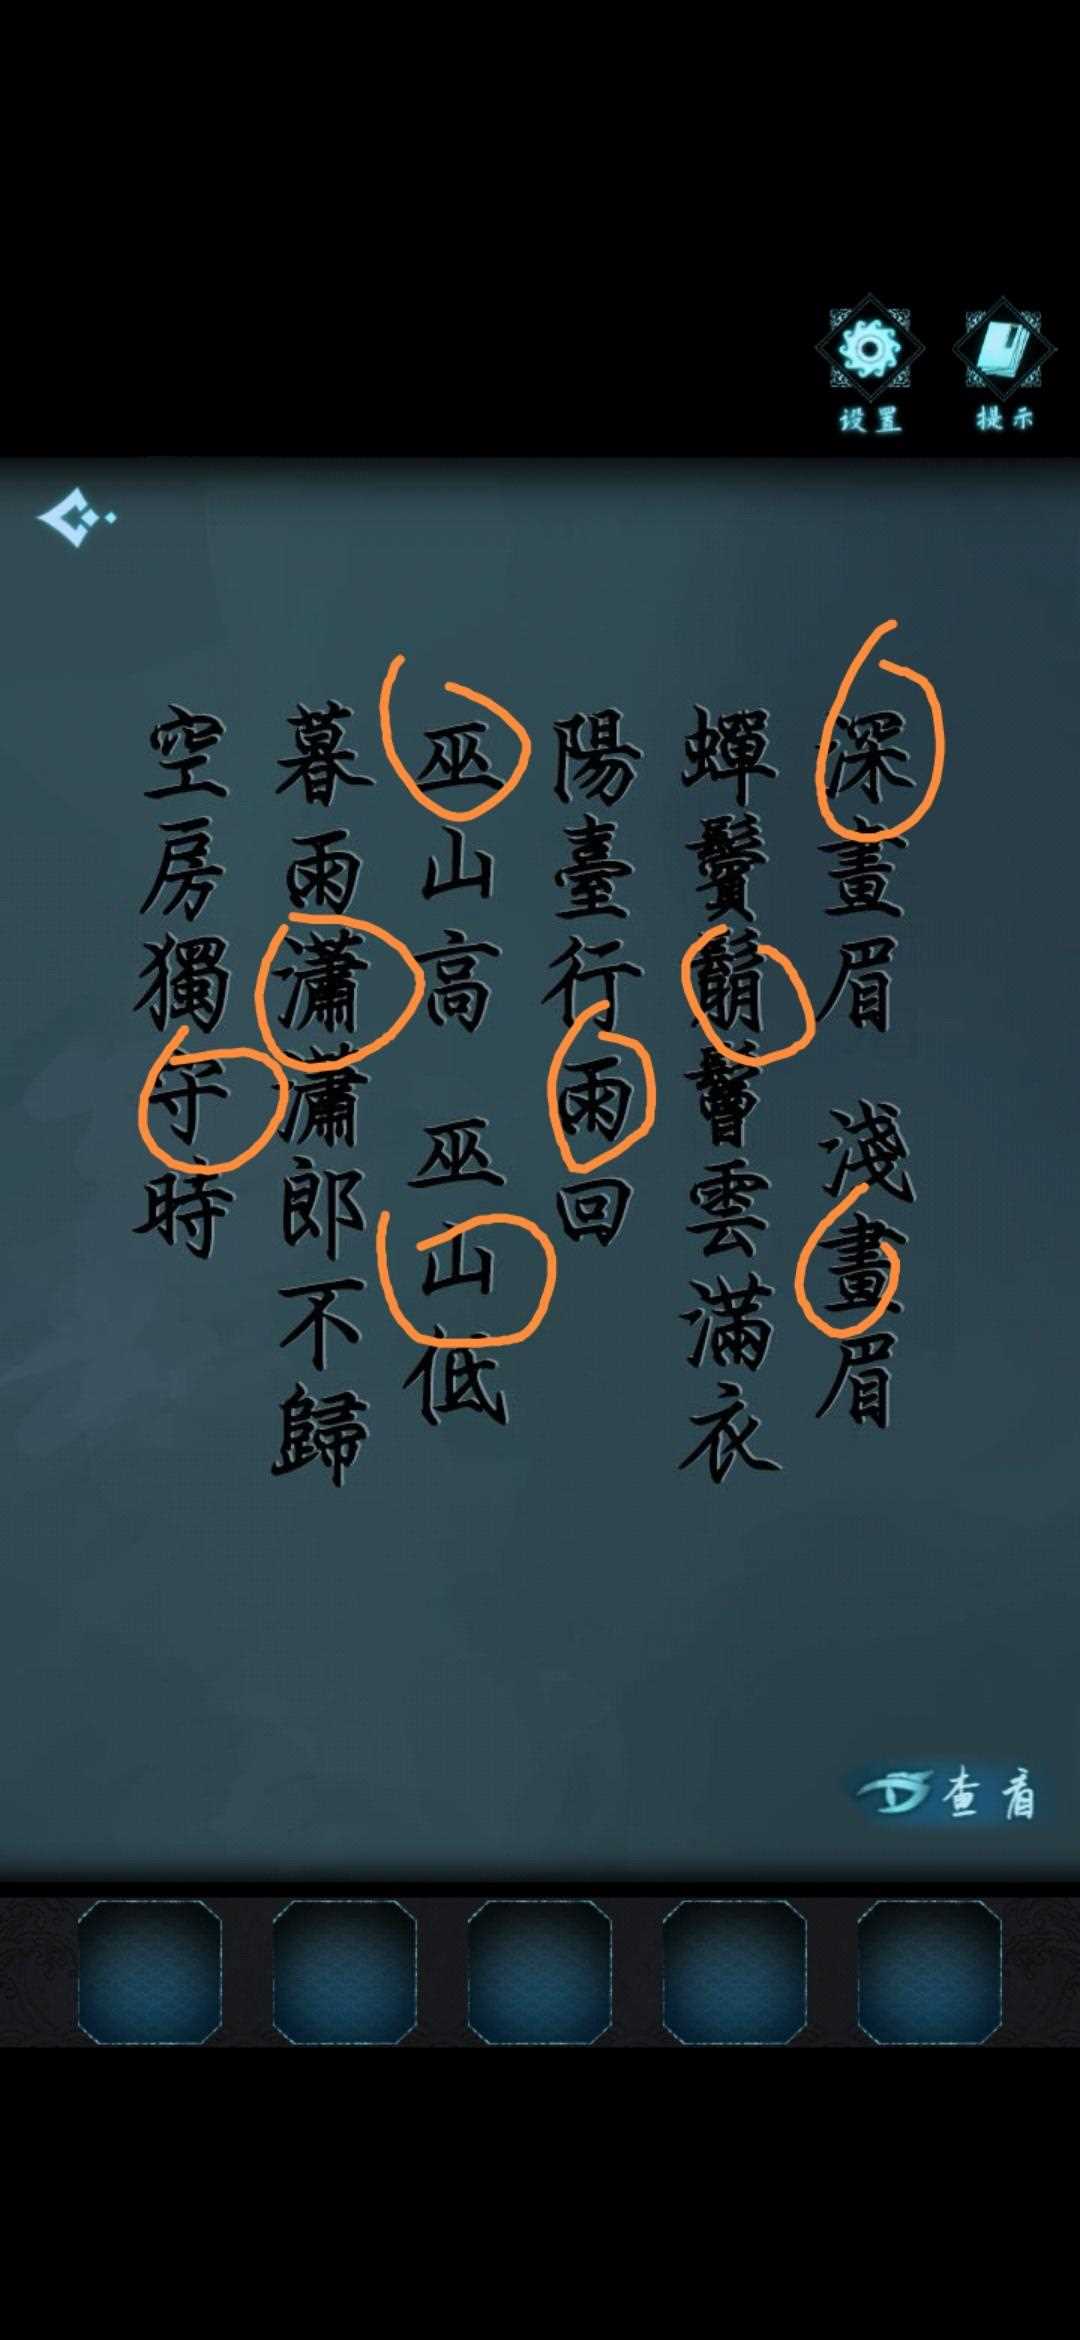 设置
提示
深畫眉 淺畫眉
蟬鬢鬅鬙雲滿衣
陽臺行雨回
巫山高 巫山低
暮雨瀟瀟郎不歸
空房獨守時
查看